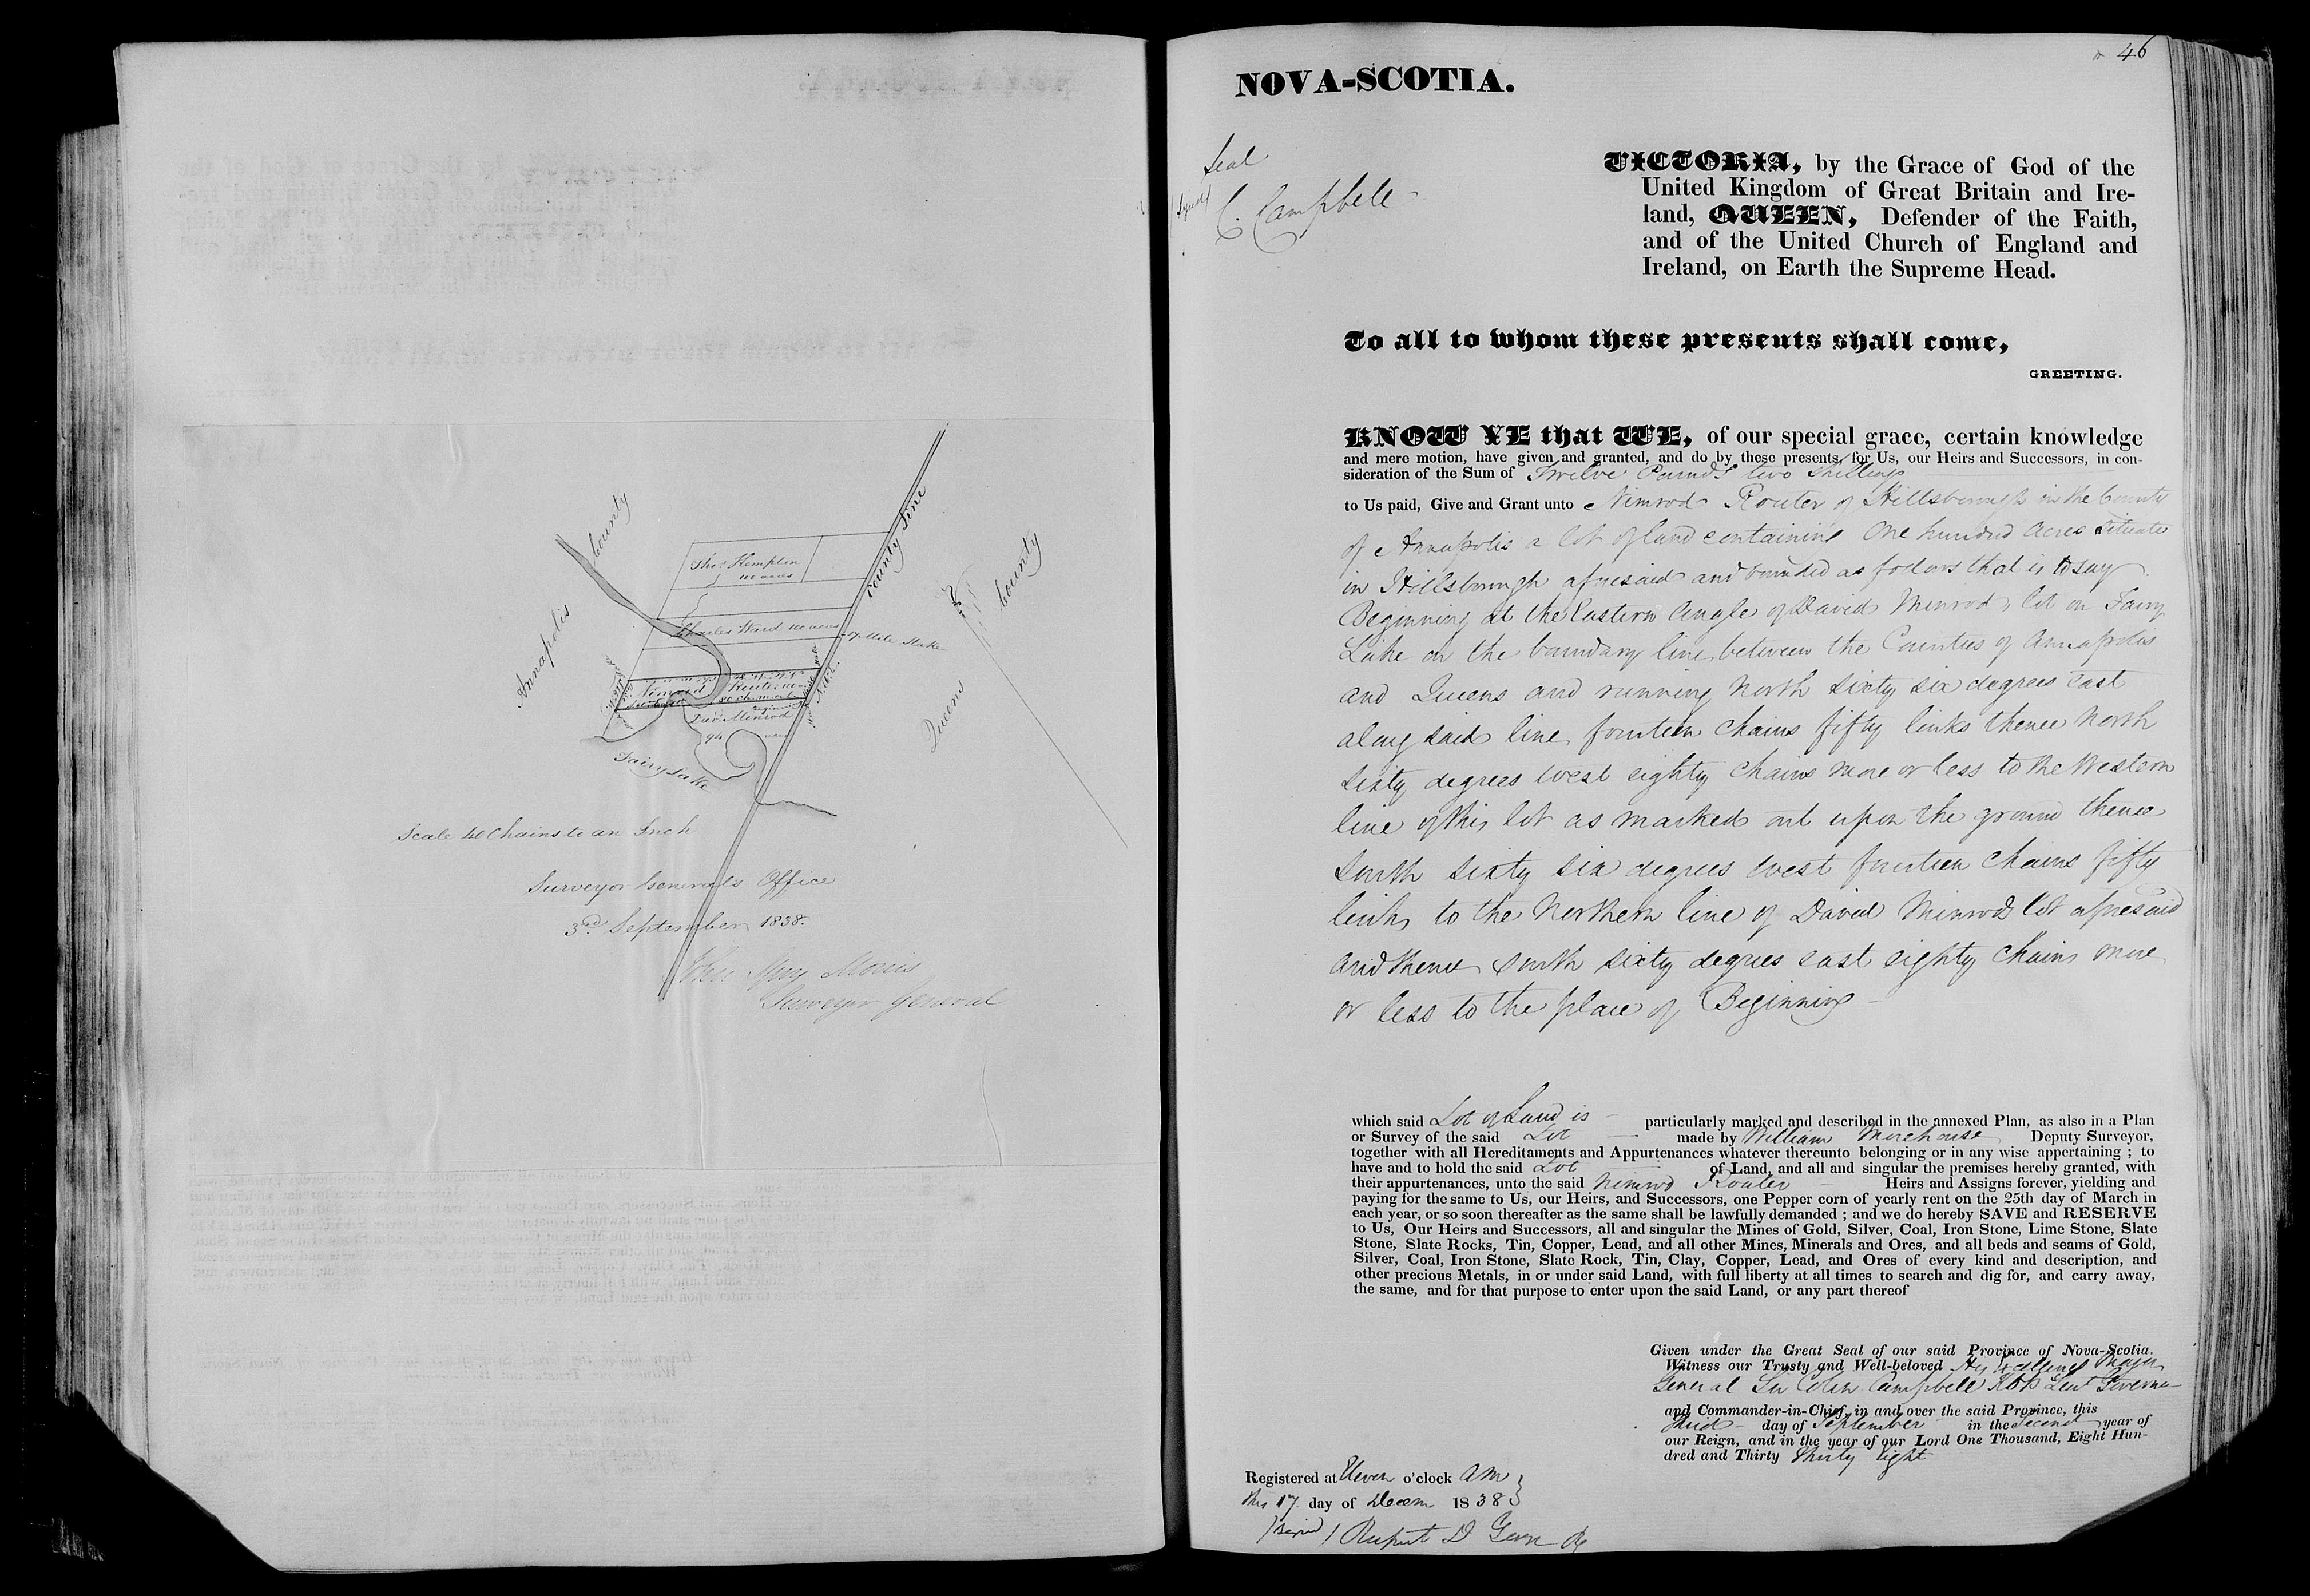 Annapolis
County
Thos. Kempton
100 acres
County Line
Charles Ward 100 acres
Mile Stake
Queens
County
Nimrod Router
Dav. Minrod
94
Fairy Lake
Scale 40 Chains to an Inch
Surveyor Generals Office
3rd September 1838.
John Spry Morris
Surveyor General
46
NOVA-SCOTIA.
Seal
(Signed) C. Campbell
VICTORIA, by the Grace of God of the
United Kingdom of Great Britain and Ire-
land, QUEEN, Defender of the Faith,
and of the United Church of England and
Ireland, on Earth the Supreme Head.
To all to whom these presents shall come,
GREETING.
KNOW YE that WE, of our special grace, certain knowledge
and mere motion, have given and granted, and do by these presents, for Us, our Heirs and Successors, in con-
sideration of the Sum of Twelve Pounds two Shillings
to Us paid, Give and Grant unto Nimrod Router of Hillsborough in the County
of Annapolis a lot of land containing One hundred acres situate
in Hillsborough aforesaid and bounded as follows that is to say
Beginning at the Eastern Angle of David Minrods lot on Fairy
Lake on the boundary line between the Counties of Annapolis
and Queens and running North sixty six degrees east
along said line fourteen chains fifty links thence North
sixty degrees west eighty chains more or less to the Western
line of this lot as marked out upon the ground thence
South sixty six degrees west fourteen chains fifty
links to the Northern line of David Minrods lot aforesaid
and thence South sixty degrees east eighty chains more
or less to the place of Beginning
which said Lot of Land is particularly marked and described in the annexed Plan, as also in a Plan
or Survey of the said Lot made by William Morehouse Deputy Surveyor,
together with all Hereditaments and Appurtenances whatever thereunto belonging or in any wise appertaining ; to
have and to hold the said Lot of Land, and all and singular the premises hereby granted, with
their appurtenances, unto the said Nimrod Router Heirs and Assigns forever, yielding and
paying for the same to Us, our Heirs, and Successors, one Pepper corn of yearly rent on the 25th day of March in
each year, or so soon thereafter as the same shall be lawfully demanded ; and we do hereby SAVE and RESERVE
to Us, Our Heirs and Successors, all and singular the Mines of Gold, Silver, Coal, Iron Stone, Lime Stone, Slate
Stone, Slate Rocks, Tin, Copper, Lead, and all other Mines, Minerals and Ores, and all beds and seams of Gold,
Silver, Coal, Iron Stone, Slate Rock, Tin, Clay, Copper, Lead, and Ores of every kind and description, and
other precious Metals, in or under said Land, with full liberty at all times to search and dig for, and carry away,
the same, and for that purpose to enter upon the said Land, or any part thereof
Given under the Great Seal of our said Province of Nova-Scotia.
Witness our Trusty and Well-beloved His Excellency Major
General Sir Colin Campbell KCB Lieut Governor
and Commander-in-Chief, in and over the said Province, this
Third day of September in the Second year of
our Reign, and in the year of our Lord One Thousand, Eight Hun-
dred and Thirty Thirty Eight
Registered at Eleven o'clock AM
this 17 day of Decem 1838
(Signed) Rupert D